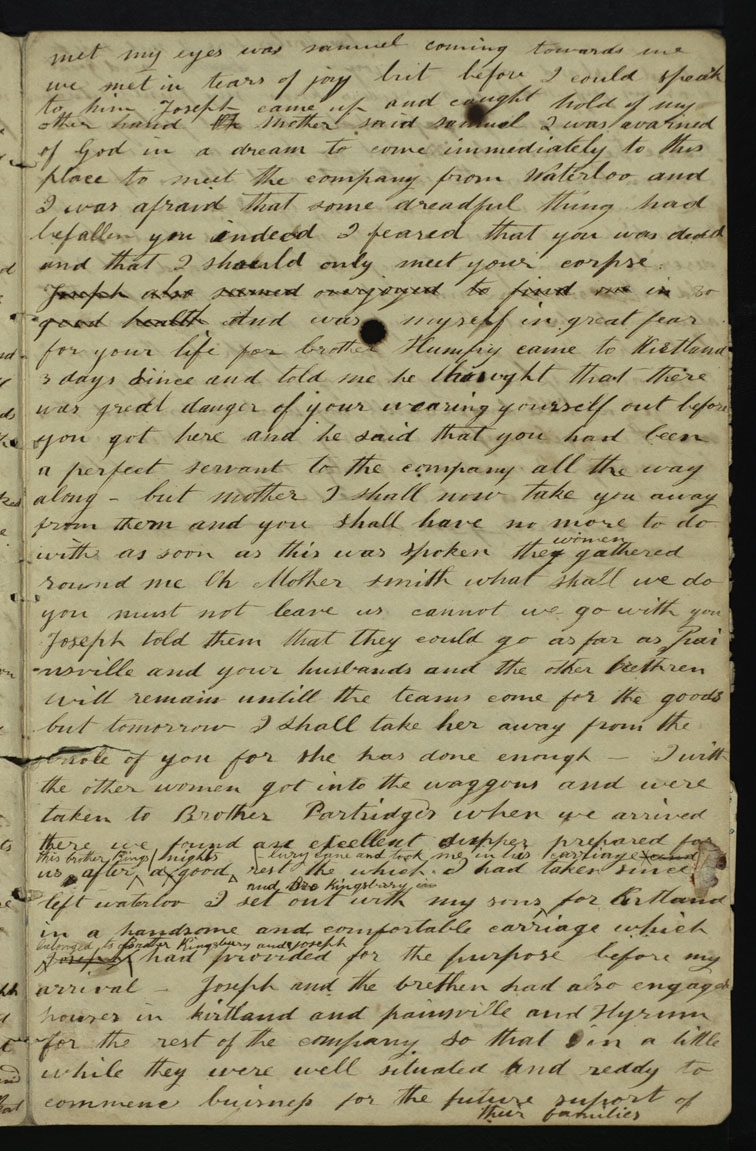 met my eyes was samuel coming towards me
we met in tears of joy but before I could speak
to him Joseph came up and caught hold of my
other hand Mother said samuel I was warned
of God in a dream to come immediately to this
place to meet the company from Waterloo and
I was afraid that some dreadful thing had
befallen you indeed I feared that you was dead
and that I should only meet your corpse
Joseph also seemed overjoyed to find me in so
good health And was myself in great fear
for your life for brother Humfry came to Kirtland
3 days since and told me he thought that there
was great danger of your wearing yourself out before
you got here and he said that you had been
a perfect servant to the company all the way
along - but mother I shall now take you away
from them and you shall have no more to do
women
with as soon as this was spoken they gathered
round me Oh Mother smith what shall we do
you must not leave us cannot we go with you
Joseph told them that they could go as far as Pai
-nsville and your husbands and the other brethren
will remain untill the teams come for the goods
but tomorrow I shall take her away from the
whole of you for she has done enough — I with
the other women got into the waggons and were
taken to Brother Partridges when we arrived
there we found an excellent supper prepared for
this brother Kings nights came and took me in his carriage
us after a good rest the which I had taken since
and Bro Kingsbury
left waterloo I set out with my sons for Kirtland
in a handsome and comfortable carriage which
belonged to Kingsbury and Joseph
Joseph had provided for the purpose before my
arrival — Joseph and the brethen had also engaged
houses in kirtland and painsville and Hyrum
for the rest of the company so that in a little
while they were well situated and reddy to
commence buirness for the future suport of
their families